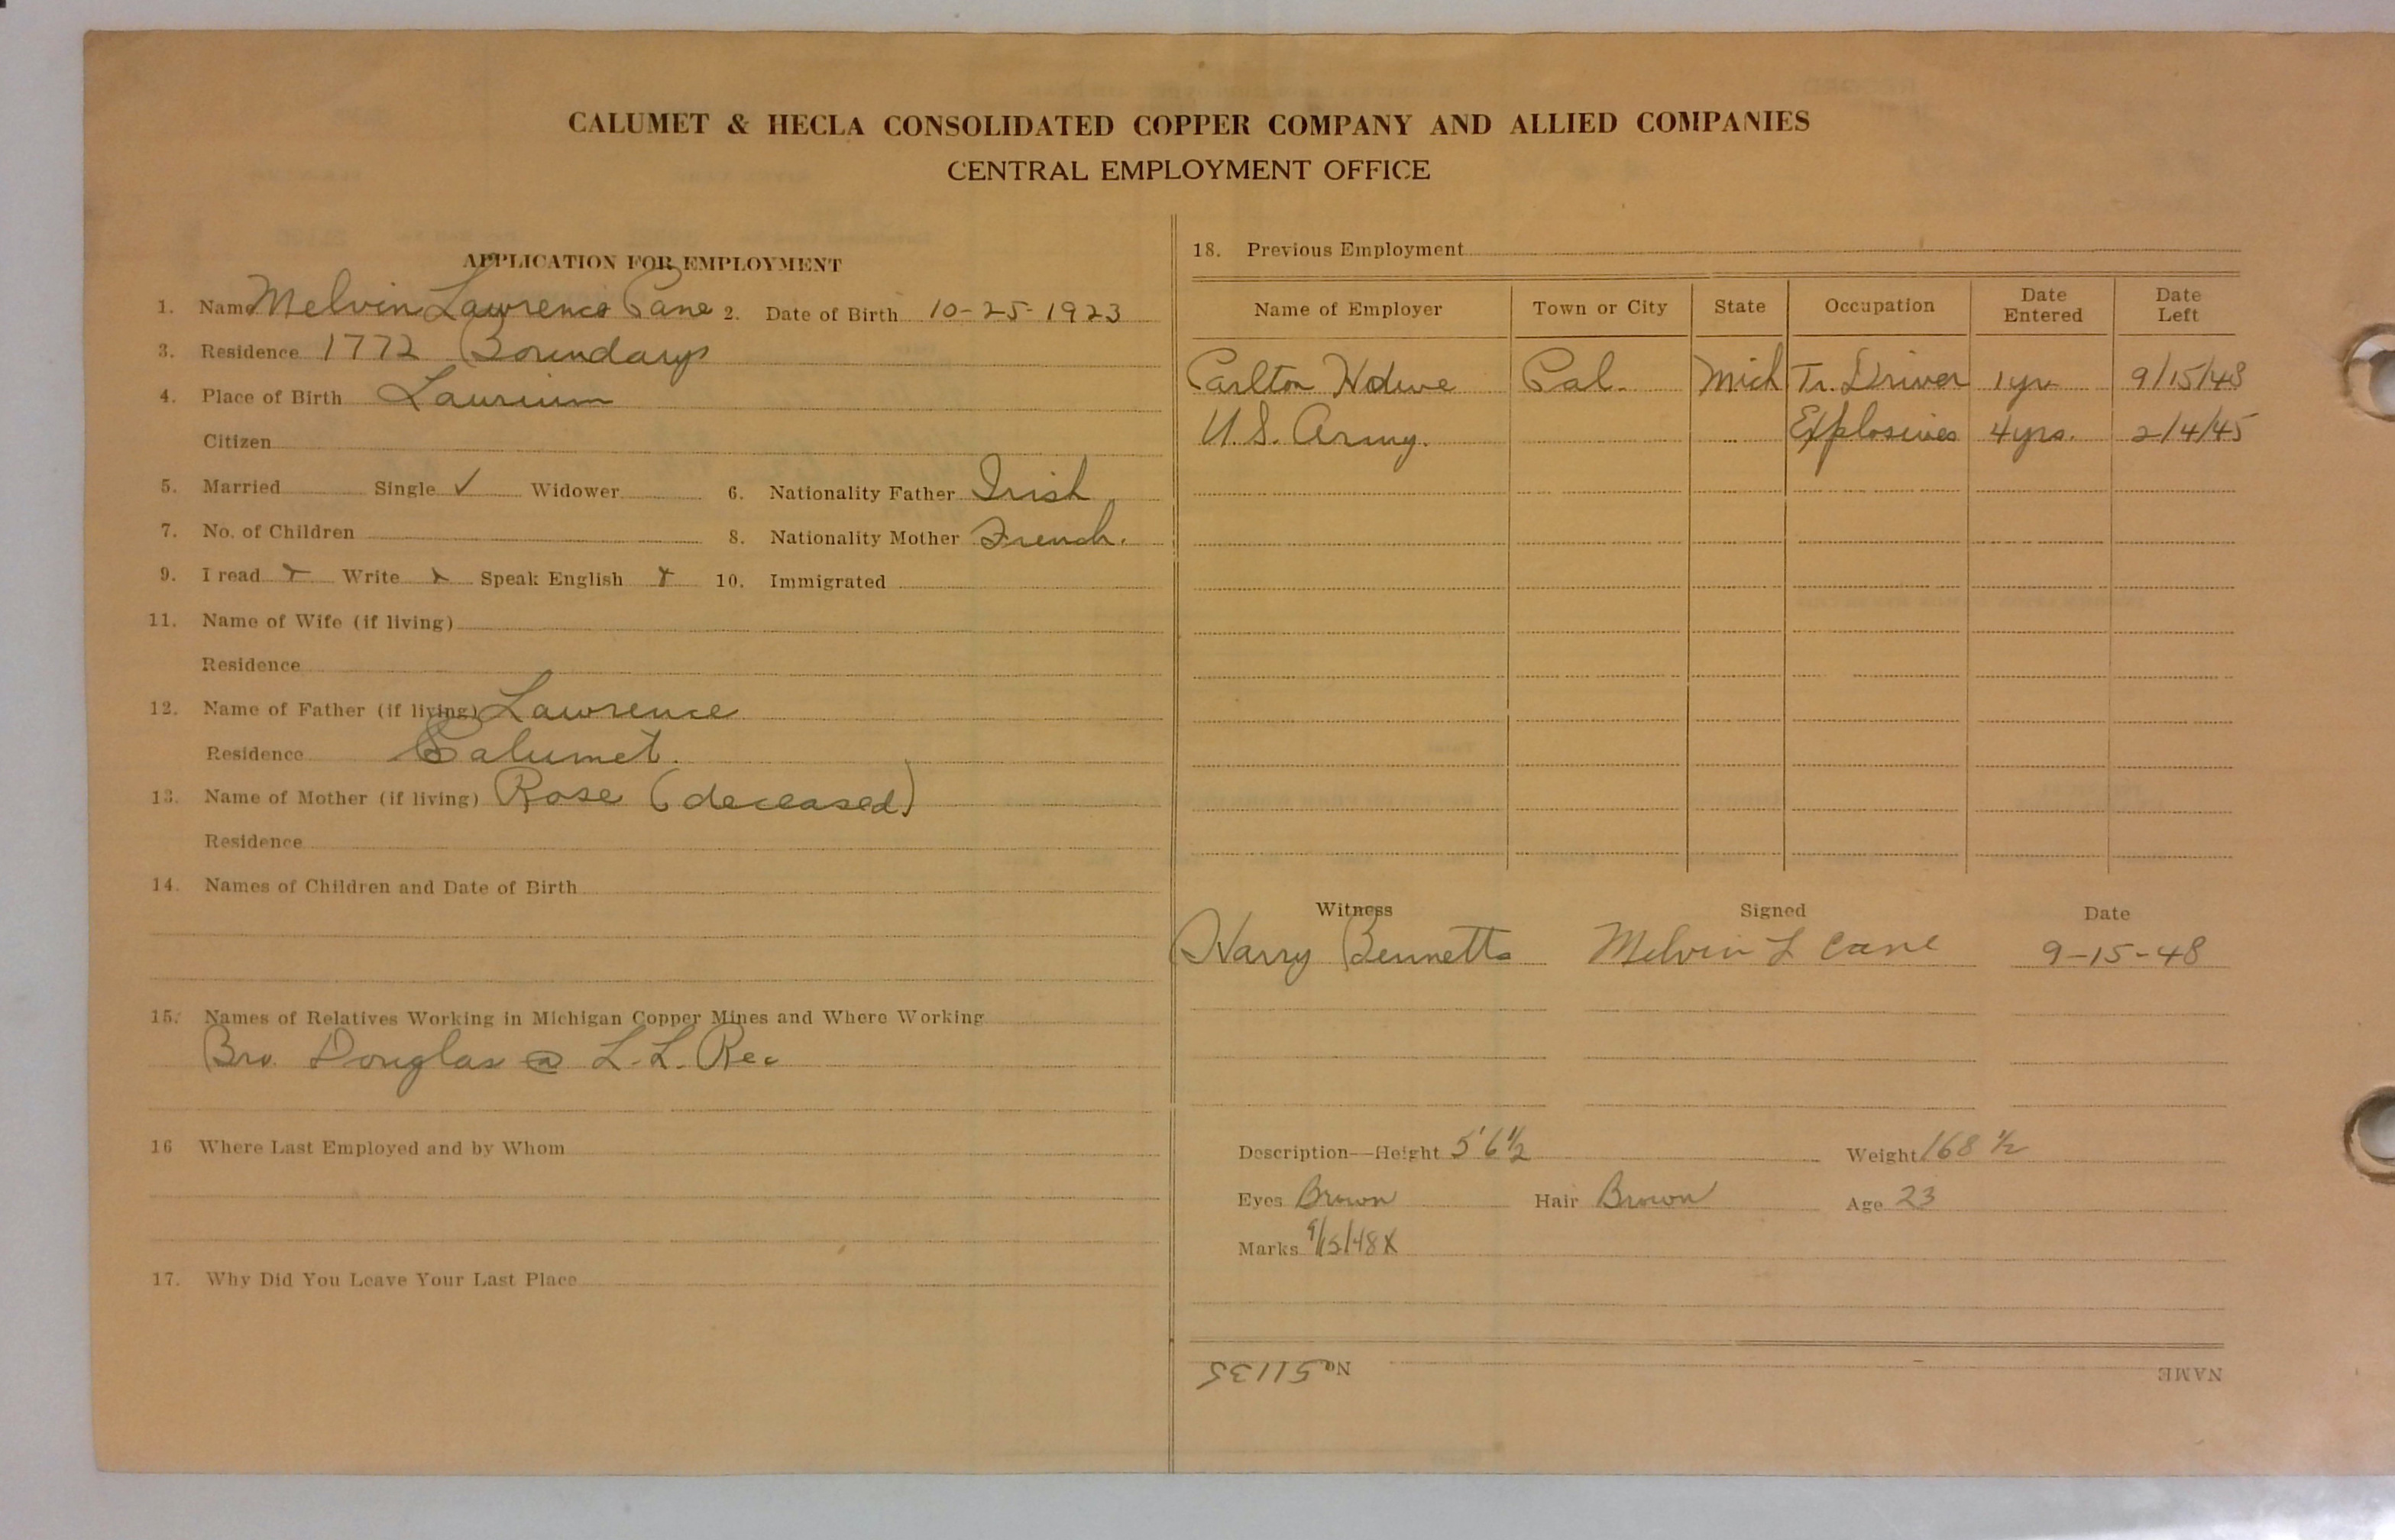 CALUMET & HECLA CONSOLIDATED COPPER COMPANY AND ALLIED COMPANIES
CENTRAL EMPLOYMENT OFFICE
APPLICATION FOR EMPLOYMENT
1. Name Melvin Lawrence Cane 2. Date of Birth 10-25-1923
3. Residence 1772 Boundary
4. Place of Birth Laurium
Citizen
5. Married Single ✓ Widower 6. Nationality Father Irish
7. No. of Children 8. Nationality Mother French.
9. I read x Write x Speak English x 10. Immigrated
11. Name of Wife (if living)
Residence
12. Name of Father (if living) Lawrence
Residence Calumet.
13. Name of Mother (if living) Rose (deceased)
Residence
14. Names of Children and Date of Birth
15. Names of Relatives Working in Michigan Copper Mines and Where Working
Bro. Douglas @ L.L. Rec
16 Where Last Employed and by Whom
17. Why Did You Leave Your Last Place
18. Previous Employment
Name of Employer Town or City State Occupation Date Entered Date Left
Carlton Cal. Mich Tr. Driver 1 yr 9/15/48
U.S. Army. Explosives 4 yrs. 2/4/45
Witness Signed Date
Harry Bennetts Melvin L Cane 9-15-48
Description—Height 5'6½ Weight 168 ½
Eyes Brown Hair Brown Age 23
Marks 9/15/48 X
No 51135 NAME